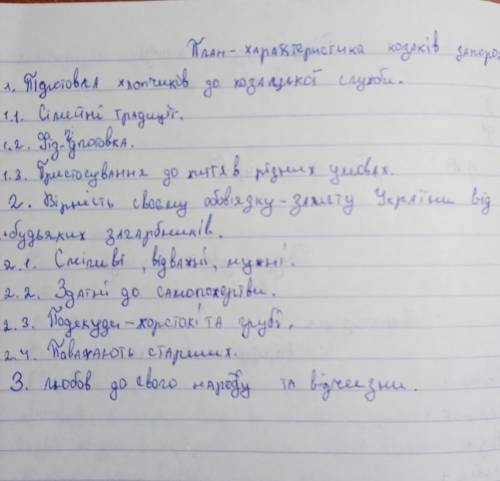 План-характеристика козаків запоро
1. Підготовка хлопчиків до козацької служби.
1.1. Сімейні традиції.
1.2. Фіз-підготовка.
1.3. Пристосування до життя в різних умовах.
2. Вірність своєму обов'язку-захисту України від
будьяких загарбників.
2.1. Сміливі, відважні, мужні.
2.2. Здатні до самопожертви.
2.3. Подекуди-жорстокі та грубі.
2.4. Поважають старших.
3. Любов до свого народу та відчизни.